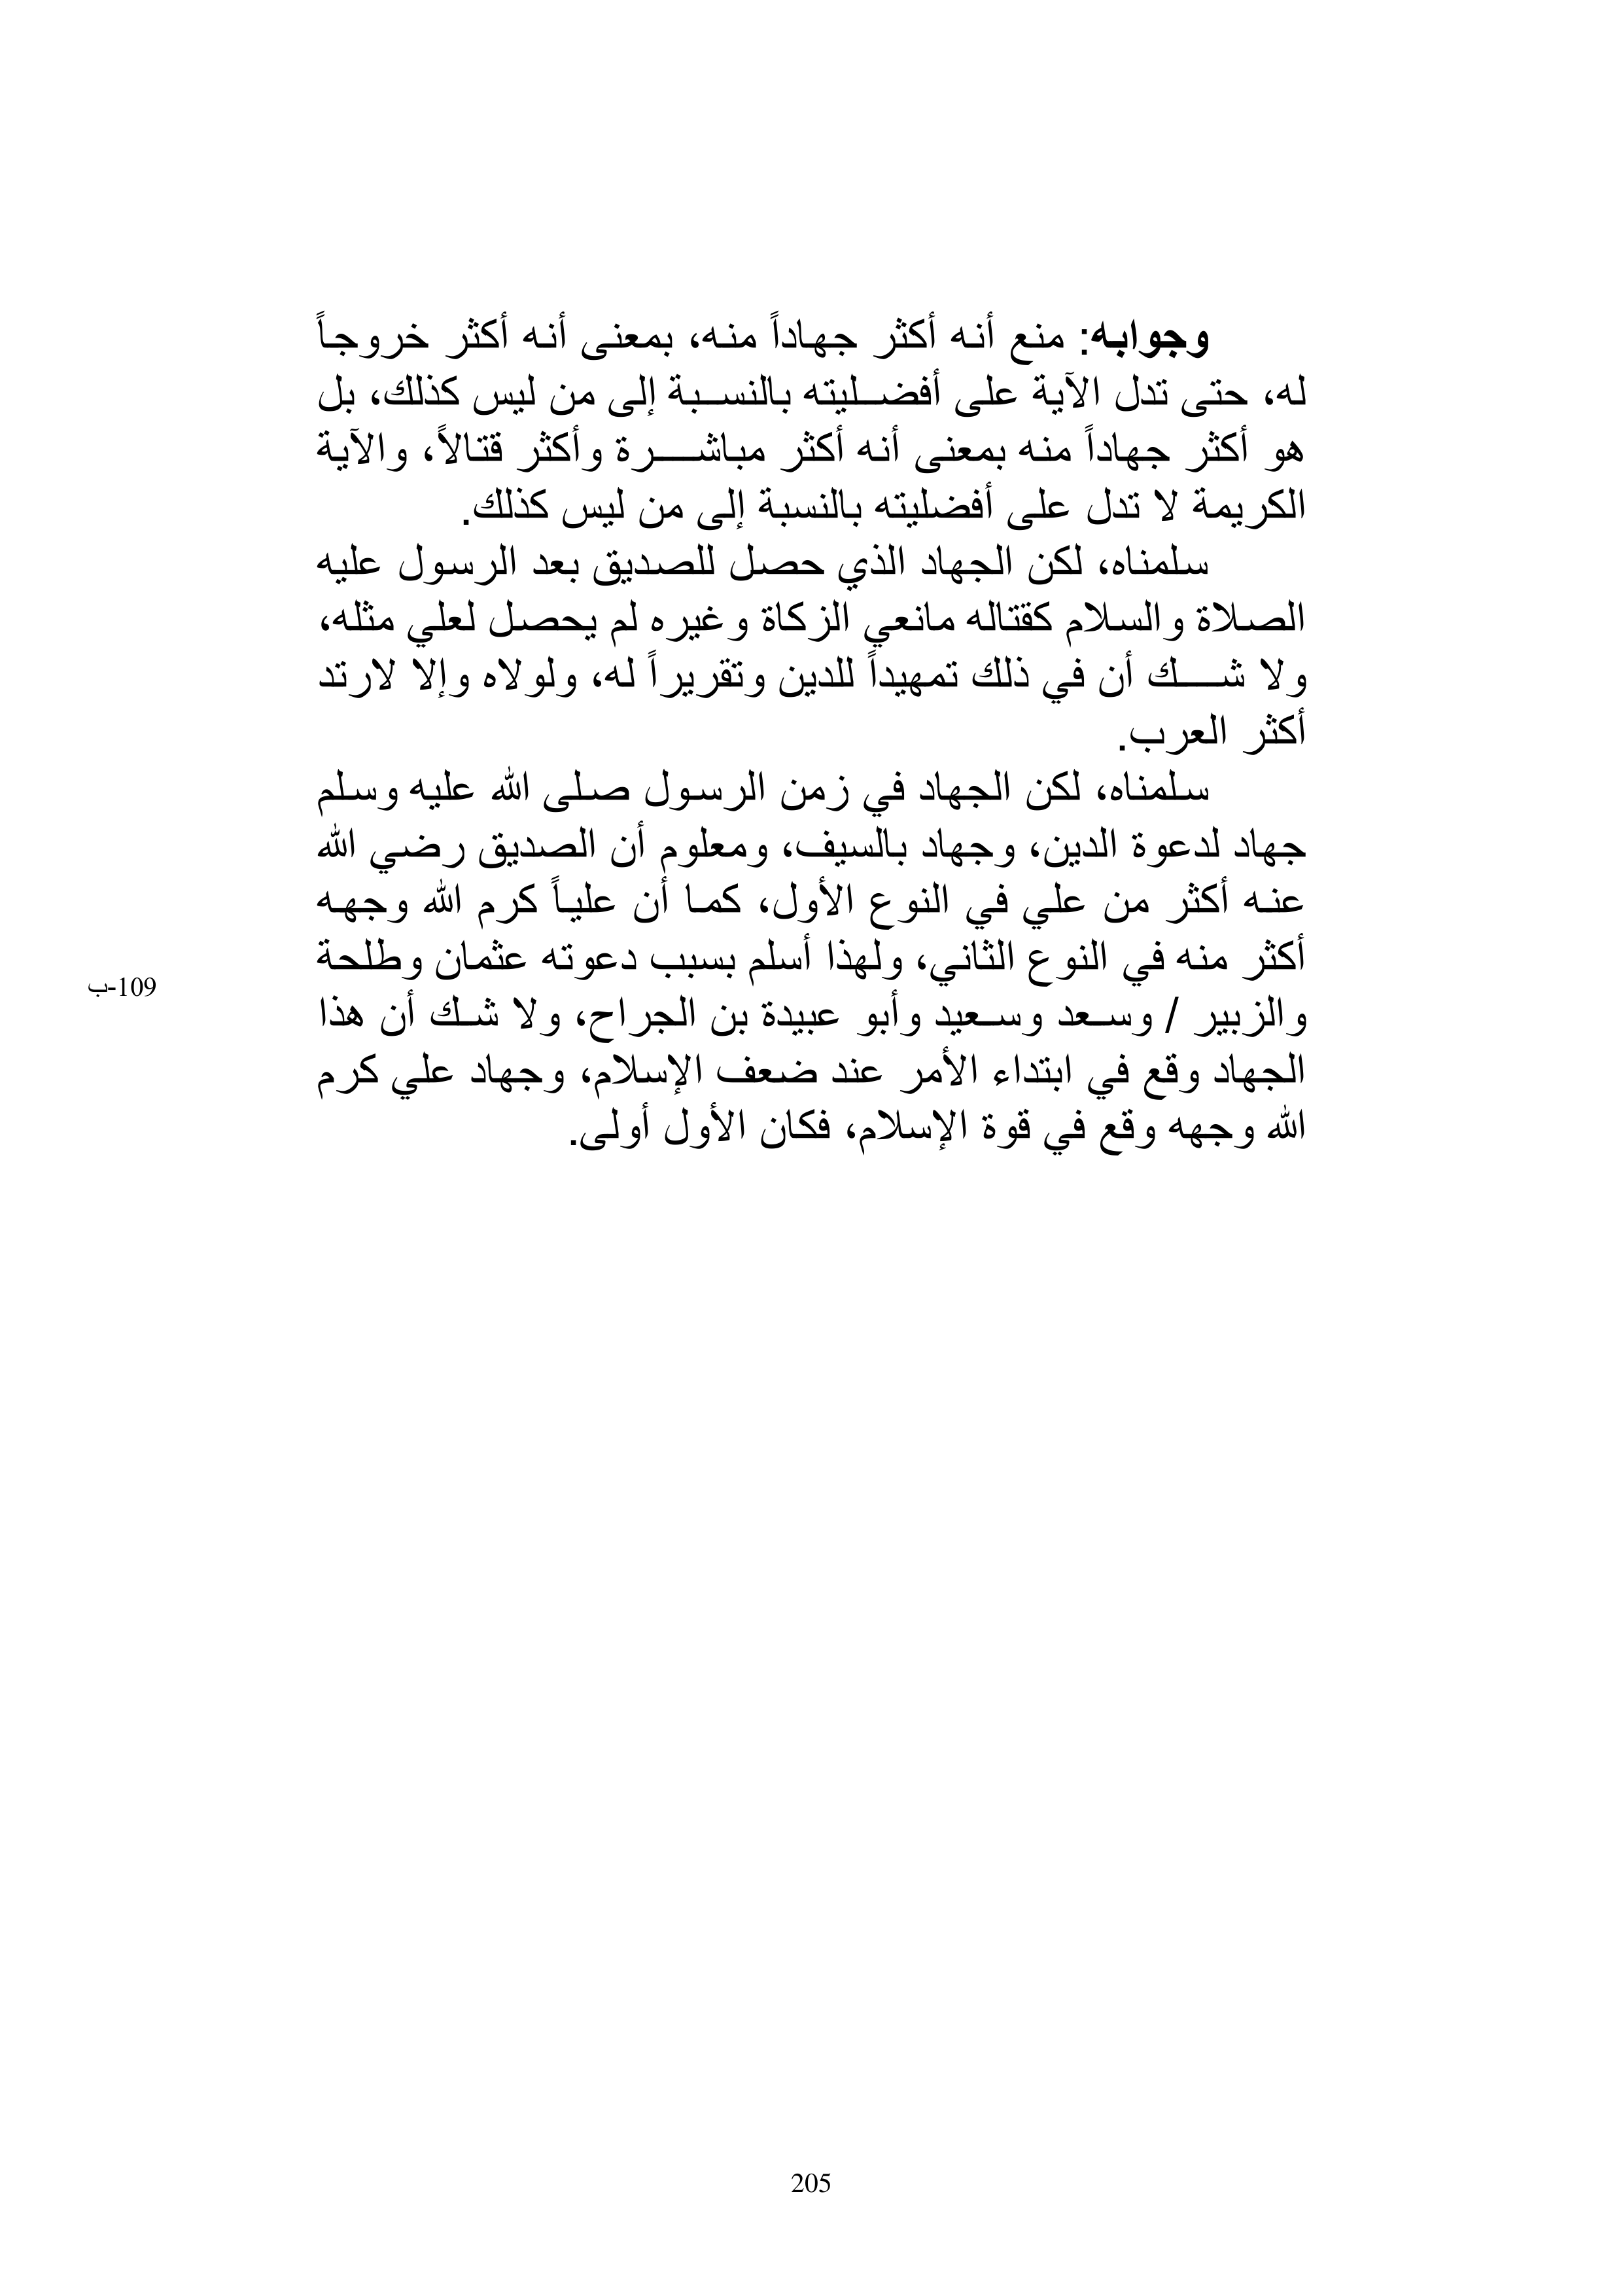 وجوابه: منع أنه أكثر جهاداً منه، بمعنى أنه أكثر خروجاً
له، حتى تدل الآية على أفضليته بالنسبة إلى من ليس كذلك، بل
هو أكثر جهاداً منه بمعنى أنه أكثر مباشرة وأكثر قتالاً، والآية
الكريمة لا تدل على أفضليته بالنسبة إلى من ليس كذلك.
سلمناه، لكن الجهاد الذي حصل للصديق بعد الرسول عليه
الصلاة والسلام كقتاله مانعي الزكاة وغيره لم يحصل لعلي مثله،
ولا شك أن في ذلك تمهيداً للدين وتقريراً له، ولولاه وإلا لارتد
أكثر العرب.
سلمناه، لكن الجهاد في زمن الرسول صلى الله عليه وسلم
جهاد لدعوة الدين، وجهاد بالسيف، ومعلوم أن الصديق رضي الله
عنه أكثر من علي في النوع الأول، كما أن علياً كرم الله وجهه
أكثر منه في النوع الثاني، ولهذا أسلم بسبب دعوته عثمان وطلحة
والزبير / وسعد وسعيد وأبو عبيدة بن الجراح، ولا شك أن هذا
109-ب
الجهاد وقع في ابتداء الأمر عند ضعف الإسلام، وجهاد علي كرم
الله وجهه وقع في قوة الإسلام، فكان الأول أولى.
205